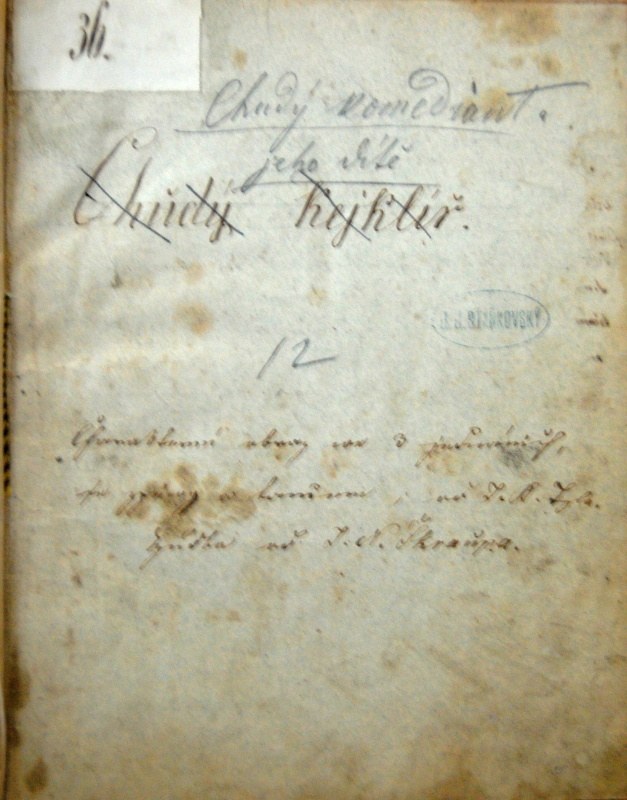 36.
Chudý komediant.
jeho dítě
Chudý kejklíř.
J. J. STAŇKOVSKÝ
12
obraz ve 3 jednáních,
se zpěvy a tancem, od J. K. Tyla.
hudba od J. N. Škraupa.